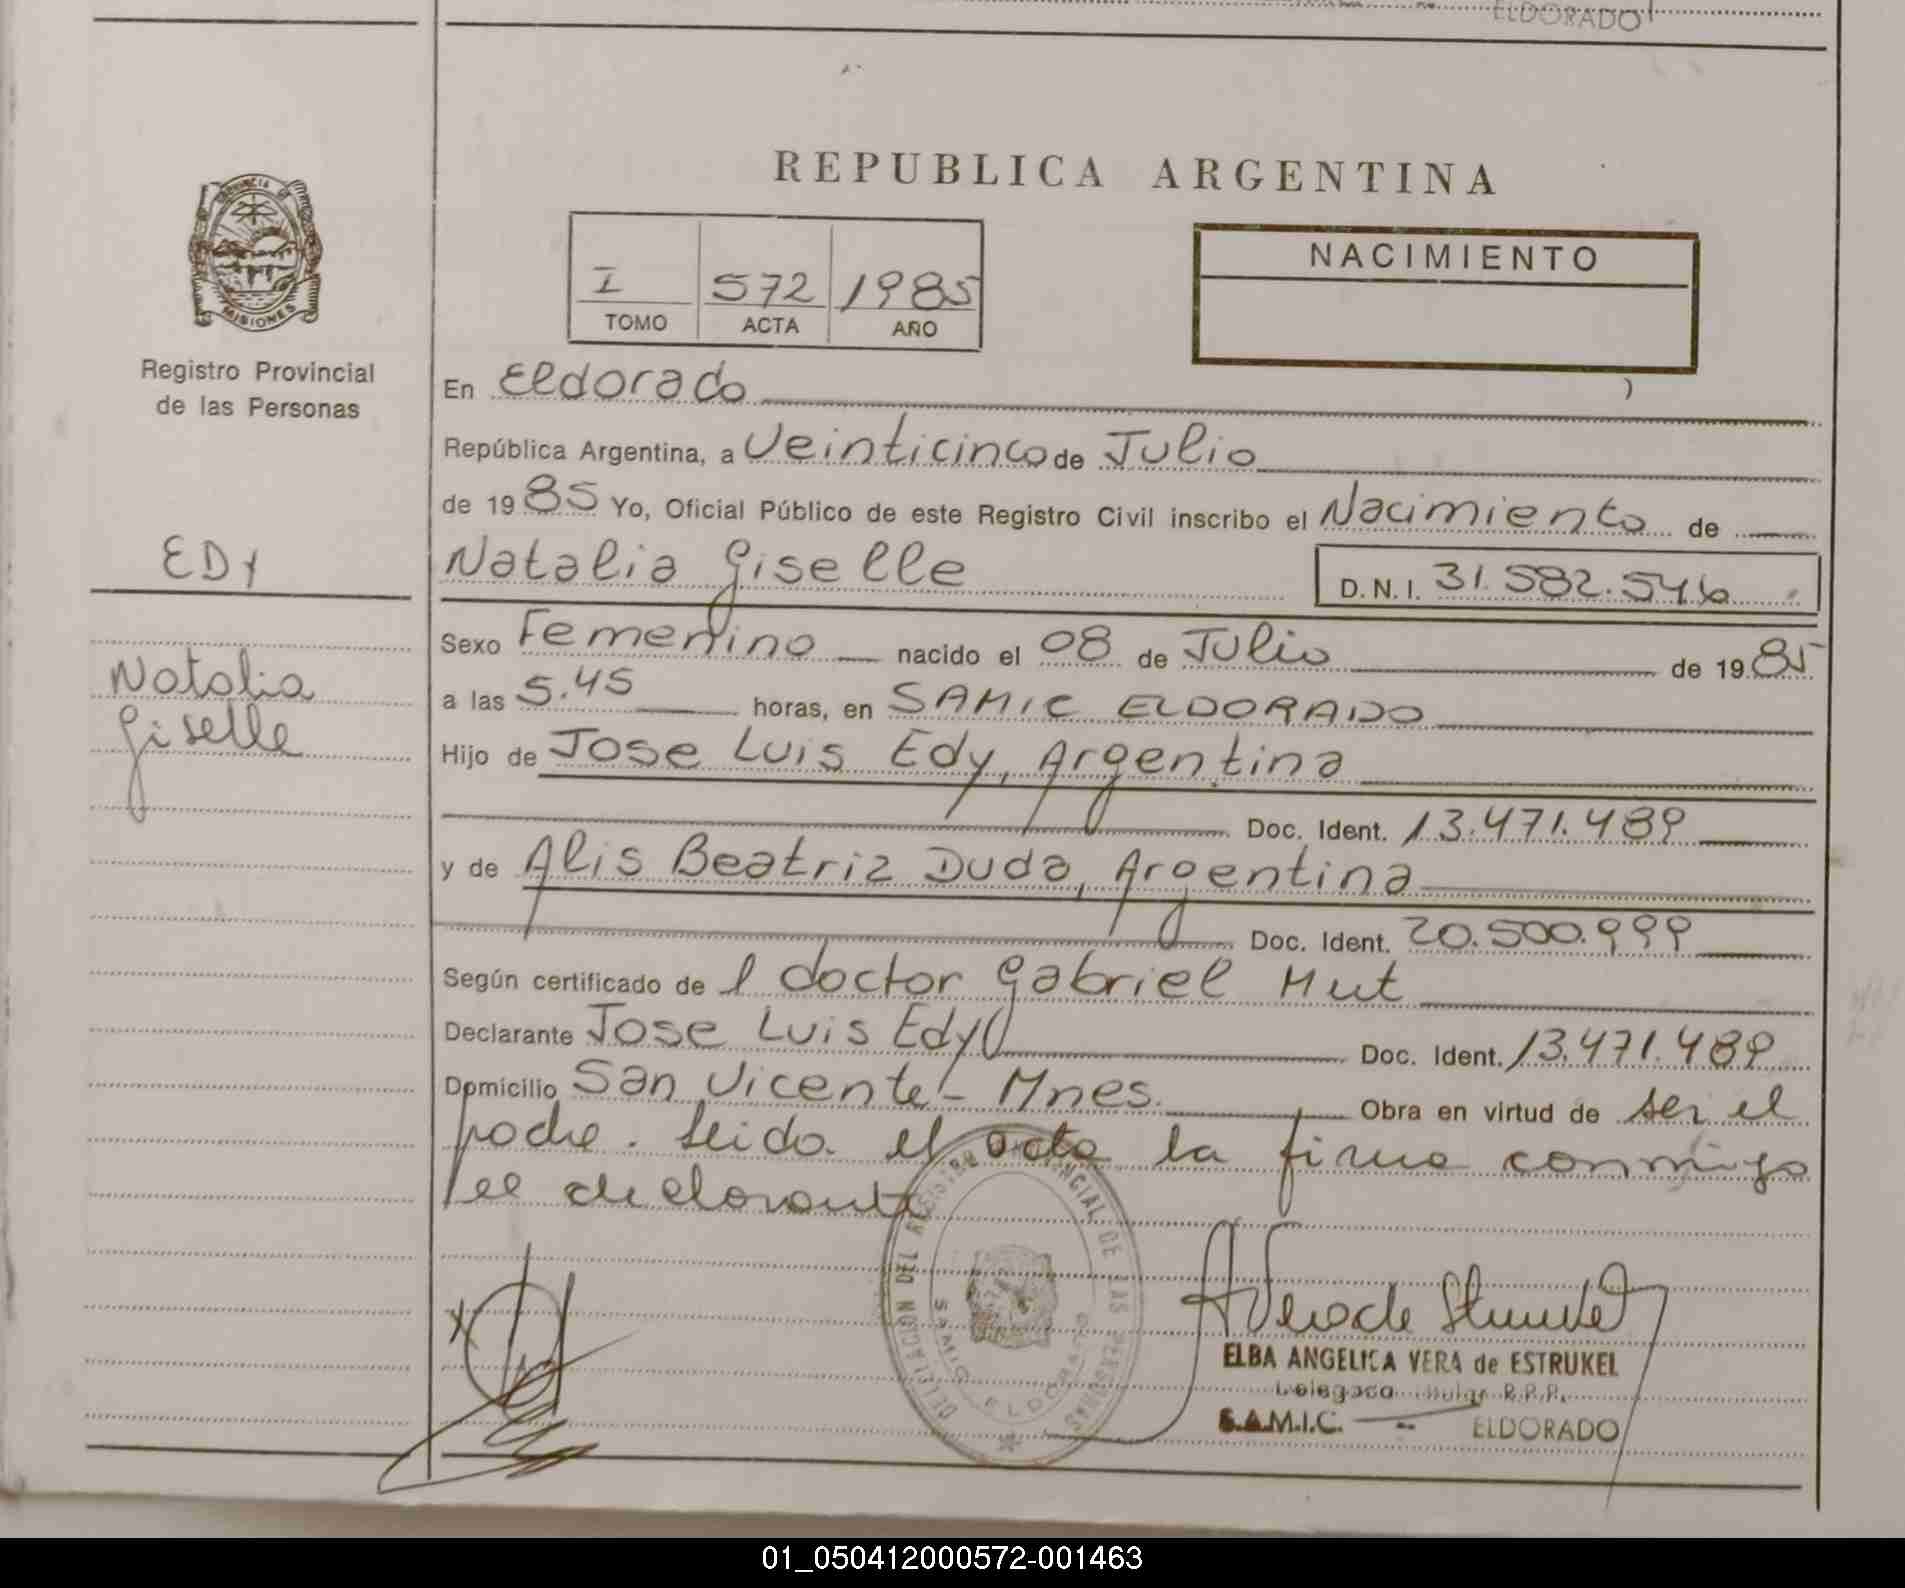 ELDORADO
REPUBLICA ARGENTINA
PROVINCIA DE
MISIONES
Registro Provincial
de las Personas
I 572 1985
TOMO ACTA AÑO
NACIMIENTO
En Eldorado
República Argentina, a Veinticinco de Julio
de 1985 Yo, Oficial Público de este Registro Civil inscribo el Nacimiento de
EDY
Natalia Giselle
D.N.I. 31.582.546
Natalia
Giselle
Sexo Femenino nacido el 08 de Julio de 1985
a las 5.45 horas, en SAMIC ELDORADO
Hijo de Jose Luis Edy, Argentina
Doc. Ident. 13.471.489
y de Alis Beatriz Duda, Argentina
Doc. Ident. 20.500.999
Según certificado de l doctor Gabriel Mut
Declarante Jose Luis Edy Doc. Ident. 13.471.489
Domicilio San Vicente - Mnes. Obra en virtud de ser el
padre. Leida el acta la firma conmigo
el declarante
DELEGACION DEL REGISTRO PROVINCIAL DE LAS PERSONAS
SAMIC ELDORADO
ELBA ANGELICA VERA de ESTRUKEL
Delegada R.P.P.
S.A.M.I.C. - ELDORADO
01_050412000572-001463